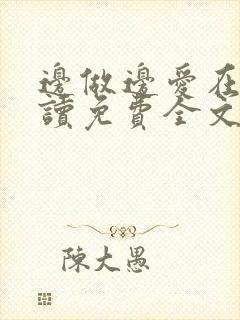 邊做邊愛在
讀免費全文
陳大愚